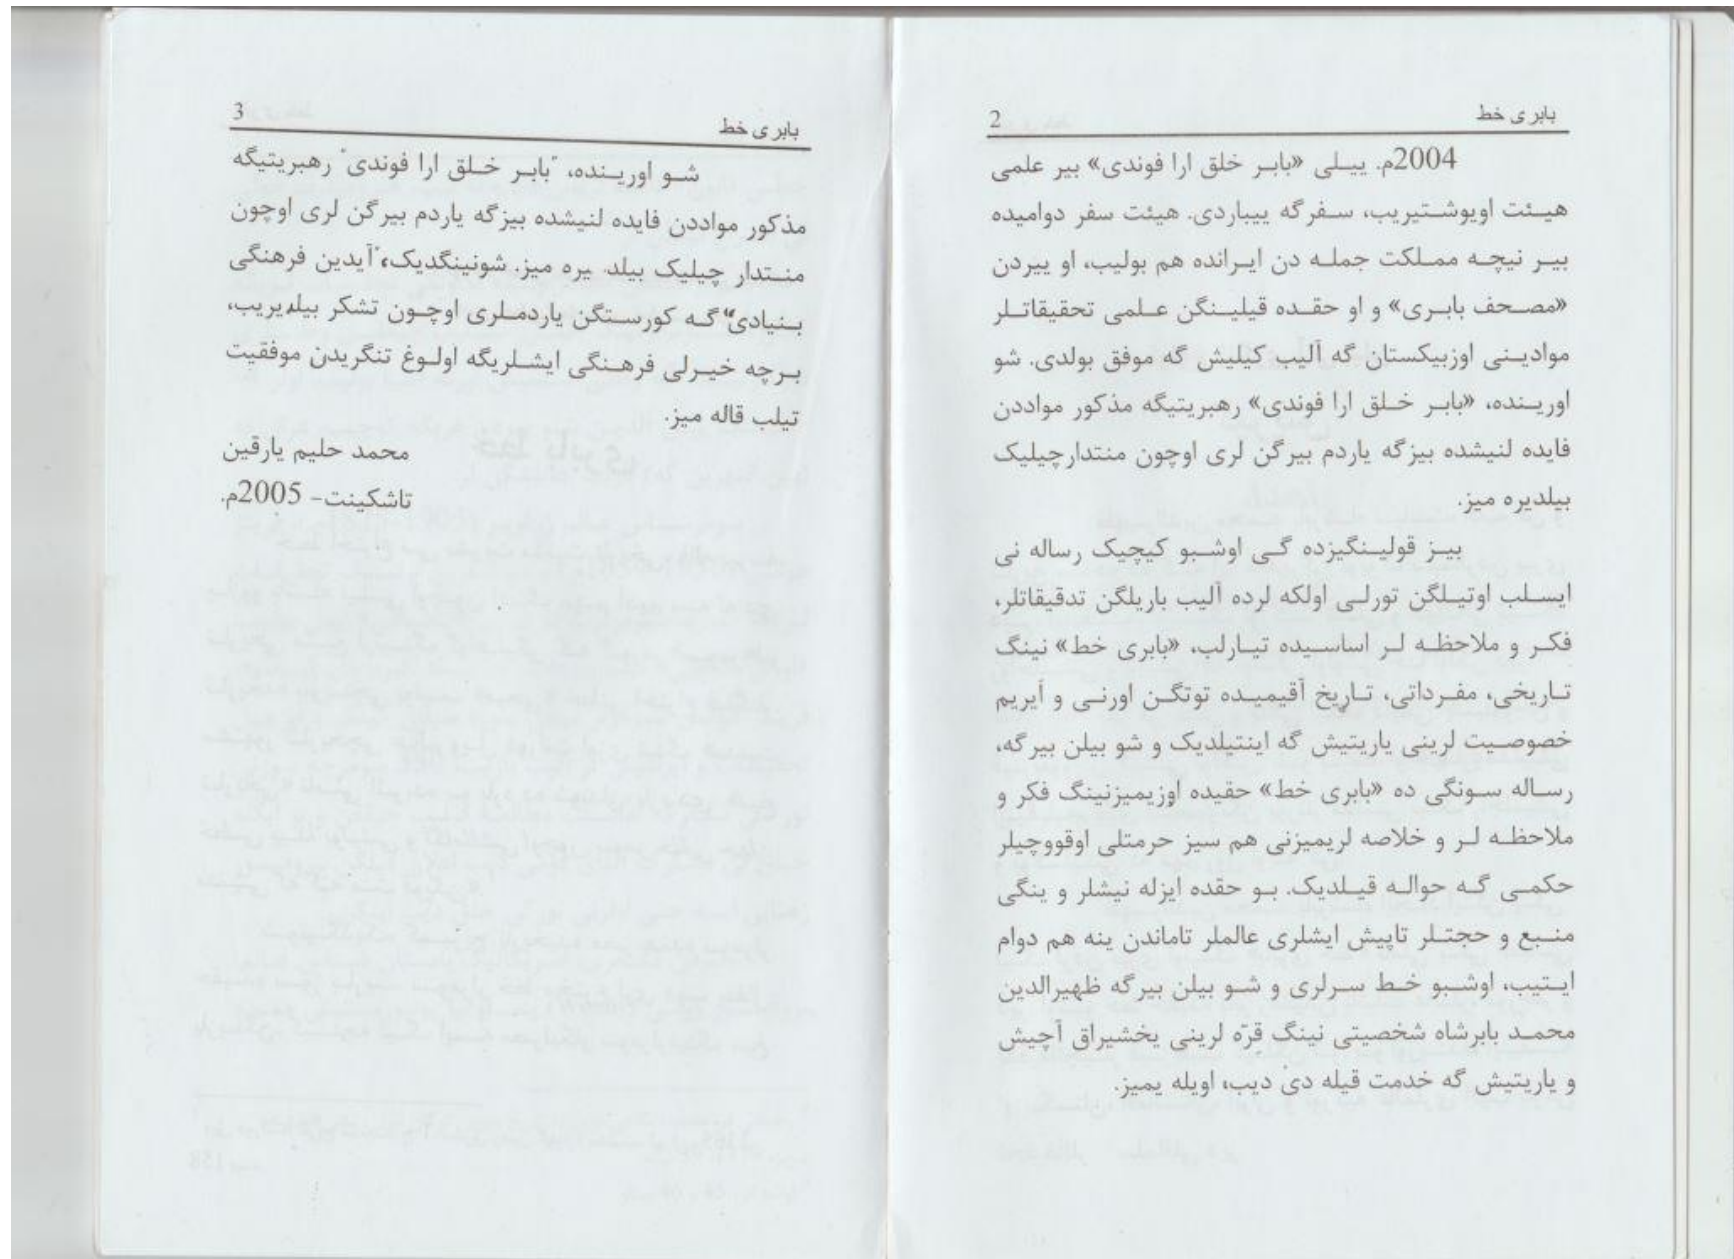 بابری خط
2
2004م. ییلی «بابر خلق ارا فوندی» بیر علمی
هیئت اویوشتیریب، سفرگه ییباردی. هیئت سفر دوامیده
بیر نیچه مملکت جمله دن ایرانده هم بولیب، او ییردن
«مصحف بابری» و او حقده قیلینگن علمی تحقیقاتلر
موادینی اوزبیکستان گه آلیب کیلیش گه موفق بولدی. شو
اورینده، «بابر خلق ارا فوندی» رهبریتیگه مذکور مواددن
فایده لنیشده بیزگه یاردم بیرگن لری اوچون منتدارچیلیک
بیلدیره میز.
بیز قولینگیزده گی اوشبو کیچیک رساله نی
ایسلب اوتیلگن تورلی اولکه لرده آلیب باریلگن تدقیقاتلر،
فکر و ملاحظه لر اساسیده تیارلب، «بابری خط» نینگ
تاریخی، مفرداتی، تاریخ آقیمیده توتگن اورنی و آیریم
خصوصیت لرینی یاریتیش گه اینتیلدیک و شو بیلن بیرگه،
رساله سونگی ده «بابری خط» حقیده اوزیمیزنینگ فکر و
ملاحظه لر و خلاصه لریمیزنی هم سیز حرمتلی اوقووچیلر
حکمی گه حواله قیلدیک. بو حقده ایزله نیشلر و ینگی
منبع و حجتلر تاپیش ایشلری عالملر تاماندن ینه هم دوام
ایتیب، اوشبو خط سرلری و شو بیلن بیرگه ظهیرالدین
محمد بابرشاه شخصیتی نینگ قرّه لرینی یخشیراق آچیش
و یاریتیش گه خدمت قیله دی دیب، اویله یمیز.
بابری خط
3
شو اورینده، "بابر خلق ارا فوندی" رهبریتیگه
مذکور مواددن فایده لنیشده بیزگه یاردم بیرگن لری اوچون
منتدار چیلیک بیلد یره میز. شونینگدیک، "آیدین فرهنگی
بنیادی" گه کورستگن یاردملری اوچون تشکر بیلدیریب،
برچه خیرلی فرهنگی ایشلریگه اولوغ تنگریدن موفقیت
تیلب قاله میز.
محمد حلیم یارقین
تاشکینت- 2005م.